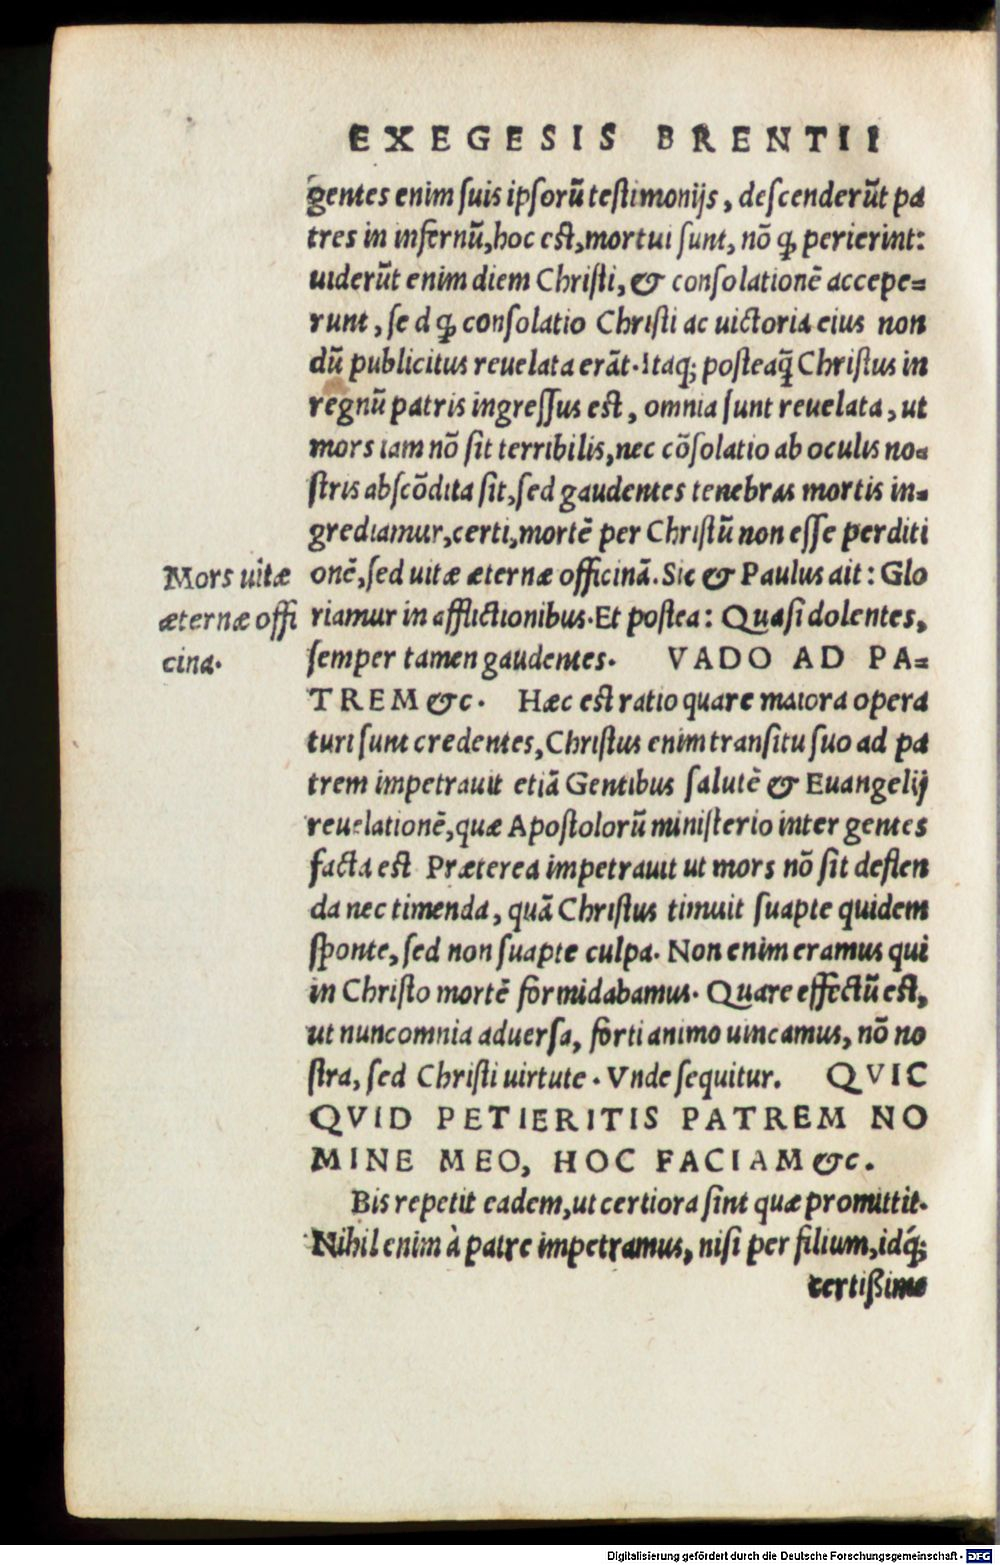 EXEGESIS BRENTII
gentes enim ſuis ipſorū teſtimonijs, deſcenderūt pa
tres in infernū, hoc eſt, mortui ſunt, nō ꝙ perierint:
uiderūt enim diem Chriſti, & conſolationē accepe=
runt, ſed ꝙ conſolatio Chriſti ac uictoria eius non
dū publicitus reuelata erāt. Itaq; poſteaq̄ Chriſtus in
regnū patris ingreſſus eſt, omnia ſunt reuelata, ut
mors iam nō ſit terribilis, nec cōſolatio ab oculis no=
ſtris abſcōdita ſit, ſed gaudentes tenebras mortis in=
grediamur, certi, mortē per Chriſtū non eſſe perditi
Mors uitæ
æternæ offi
cina.
onē, ſed uitæ æternæ officinā. Sic & Paulus ait: Glo
riamur in afflictionibus. Et poſtea: Quaſi dolentes,
ſemper tamen gaudentes. VADO AD PA=
TREM &c. Hæc eſt ratio quare maiora opera
turi ſunt credentes, Chriſtus enim tranſitu ſuo ad pa
trem impetrauit etiā Gentibus ſalutē & Euangelij
reuelationē, quæ Apoſtolorū miniſterio inter gentes
facta eſt Præterea impetrauit ut mors nō ſit deflen
da nec timenda, quā Chriſtus timuit ſuapte quidem
ſponte, ſed non ſuapte culpa. Non enim eramus qui
in Chriſto mortē formidabamus. Quare effectū eſt,
ut nunc omnia aduerſa, forti animo uincamus, nō no
ſtra, ſed Chriſti uirtute. Vnde ſequitur. QVIC
QVID PETIERITIS PATREM NO
MINE MEO, HOC FACIAM &c.
Bis repetit eadem, ut certiora ſint quæ promittit.
Nihil enim à patre impetramus, niſi per filium, idq́;
certißime
Digitalisierung gefördert durch die Deutsche Forschungsgemeinschaft - DFG